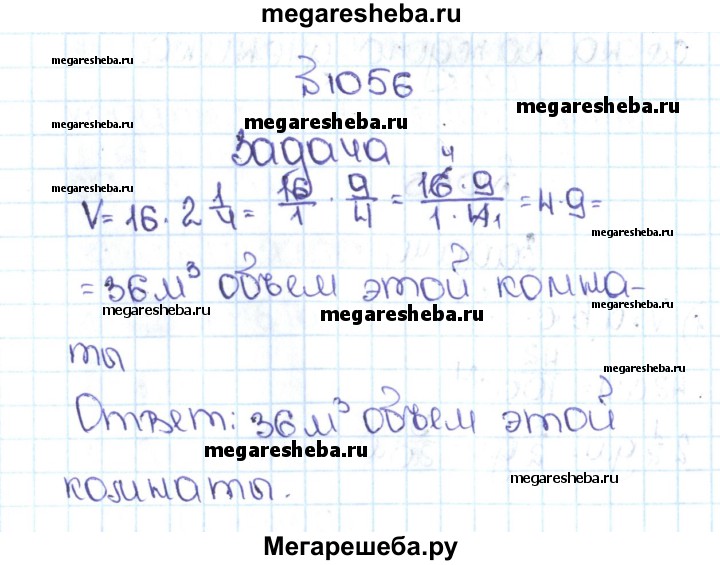 megaresheba.ru
megaresheba.ru
№1056
megaresheba.ru
megaresheba.ru
megaresheba.ru
Задача
megaresheba.ru
V = 16 · 2 1/4 = 16/1 · 9/4 = 16 4 · 9 / 1 · 4 1 = 4 · 9 =
megaresheba.ru
= 36 м³ объем этой комна-
megaresheba.ru
megaresheba.ru
megaresheba.ru
ты
megaresheba.ru
Ответ: 36 м³ объем этой
megaresheba.ru
комнаты.
megaresheba.ru
Мегарешеба.ру